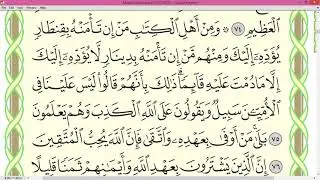 ٱلْعَظِيمِ ٧٤ ۞ وَمِنْ أَهْلِ ٱلْكِتَٰبِ مَنْ إِن تَأْمَنْهُ بِقِنطَارٍ
يُؤَدِّهِۦٓ إِلَيْكَ وَمِنْهُم مَّنْ إِن تَأْمَنْهُ بِدِينَارٍ لَّا يُؤَدِّهِۦٓ إِلَيْكَ
إِلَّا مَا دُمْتَ عَلَيْهِ قَآئِمًا ۗ ذَٰلِكَ بِأَنَّهُمْ قَالُوا۟ لَيْسَ عَلَيْنَا فِى
ٱلْأُمِّيِّـۧنَ سَبِيلٌ وَيَقُولُونَ عَلَى ٱللَّهِ ٱلْكَذِبَ وَهُمْ يَعْلَمُونَ
٧٥ بَلَىٰ مَنْ أَوْفَىٰ بِعَهْدِهِۦ وَٱتَّقَىٰ فَإِنَّ ٱللَّهَ يُحِبُّ ٱلْمُتَّقِينَ
٧٦ إِنَّ ٱلَّذِينَ يَشْتَرُونَ بِعَهْدِ ٱللَّهِ وَأَيْمَٰنِهِمْ ثَمَنًا قَلِيلًا